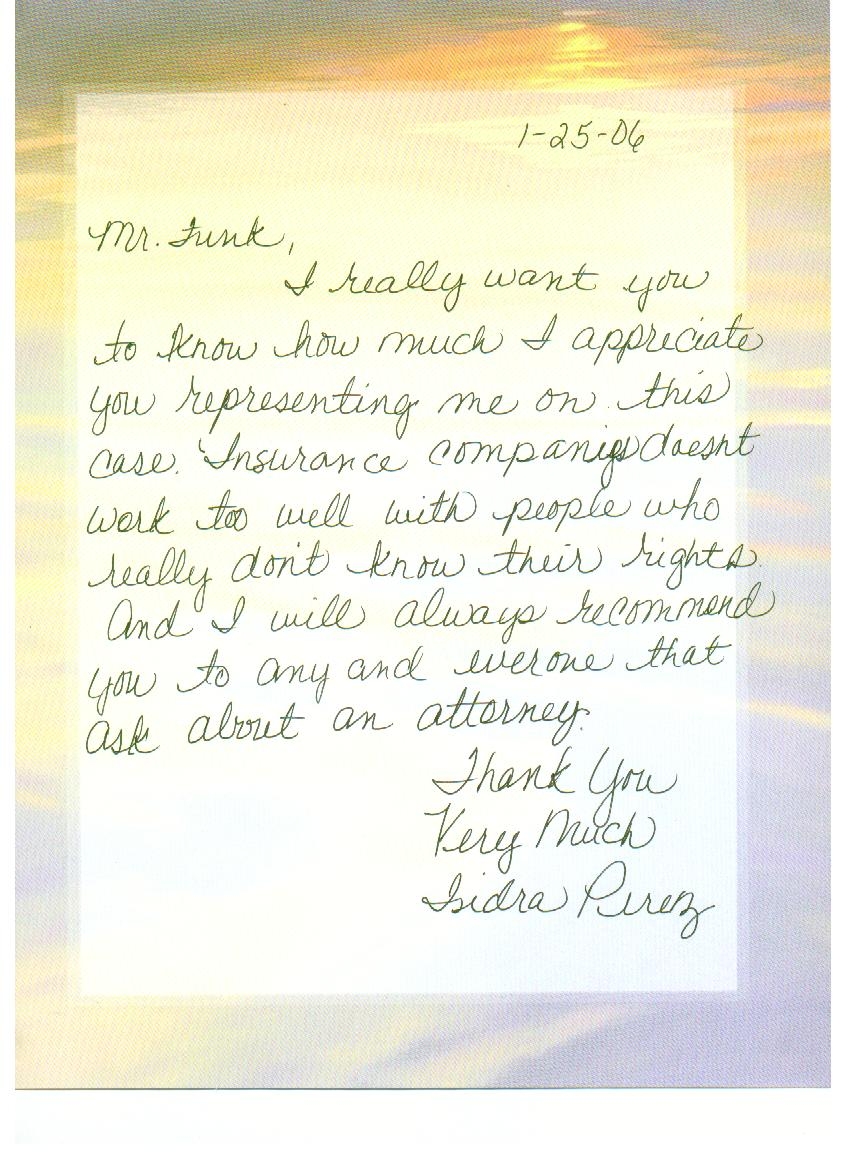 1-25-06
Mr. Funk,
I really want you
to know how much I appreciate
you representing me on this
case. Insurance companies doesn't
work too well with people who
really don't know their rights.
And I will always recommend
you to any and everone that
ask about an attorney.
Thank You
Very Much
Isidra Perez